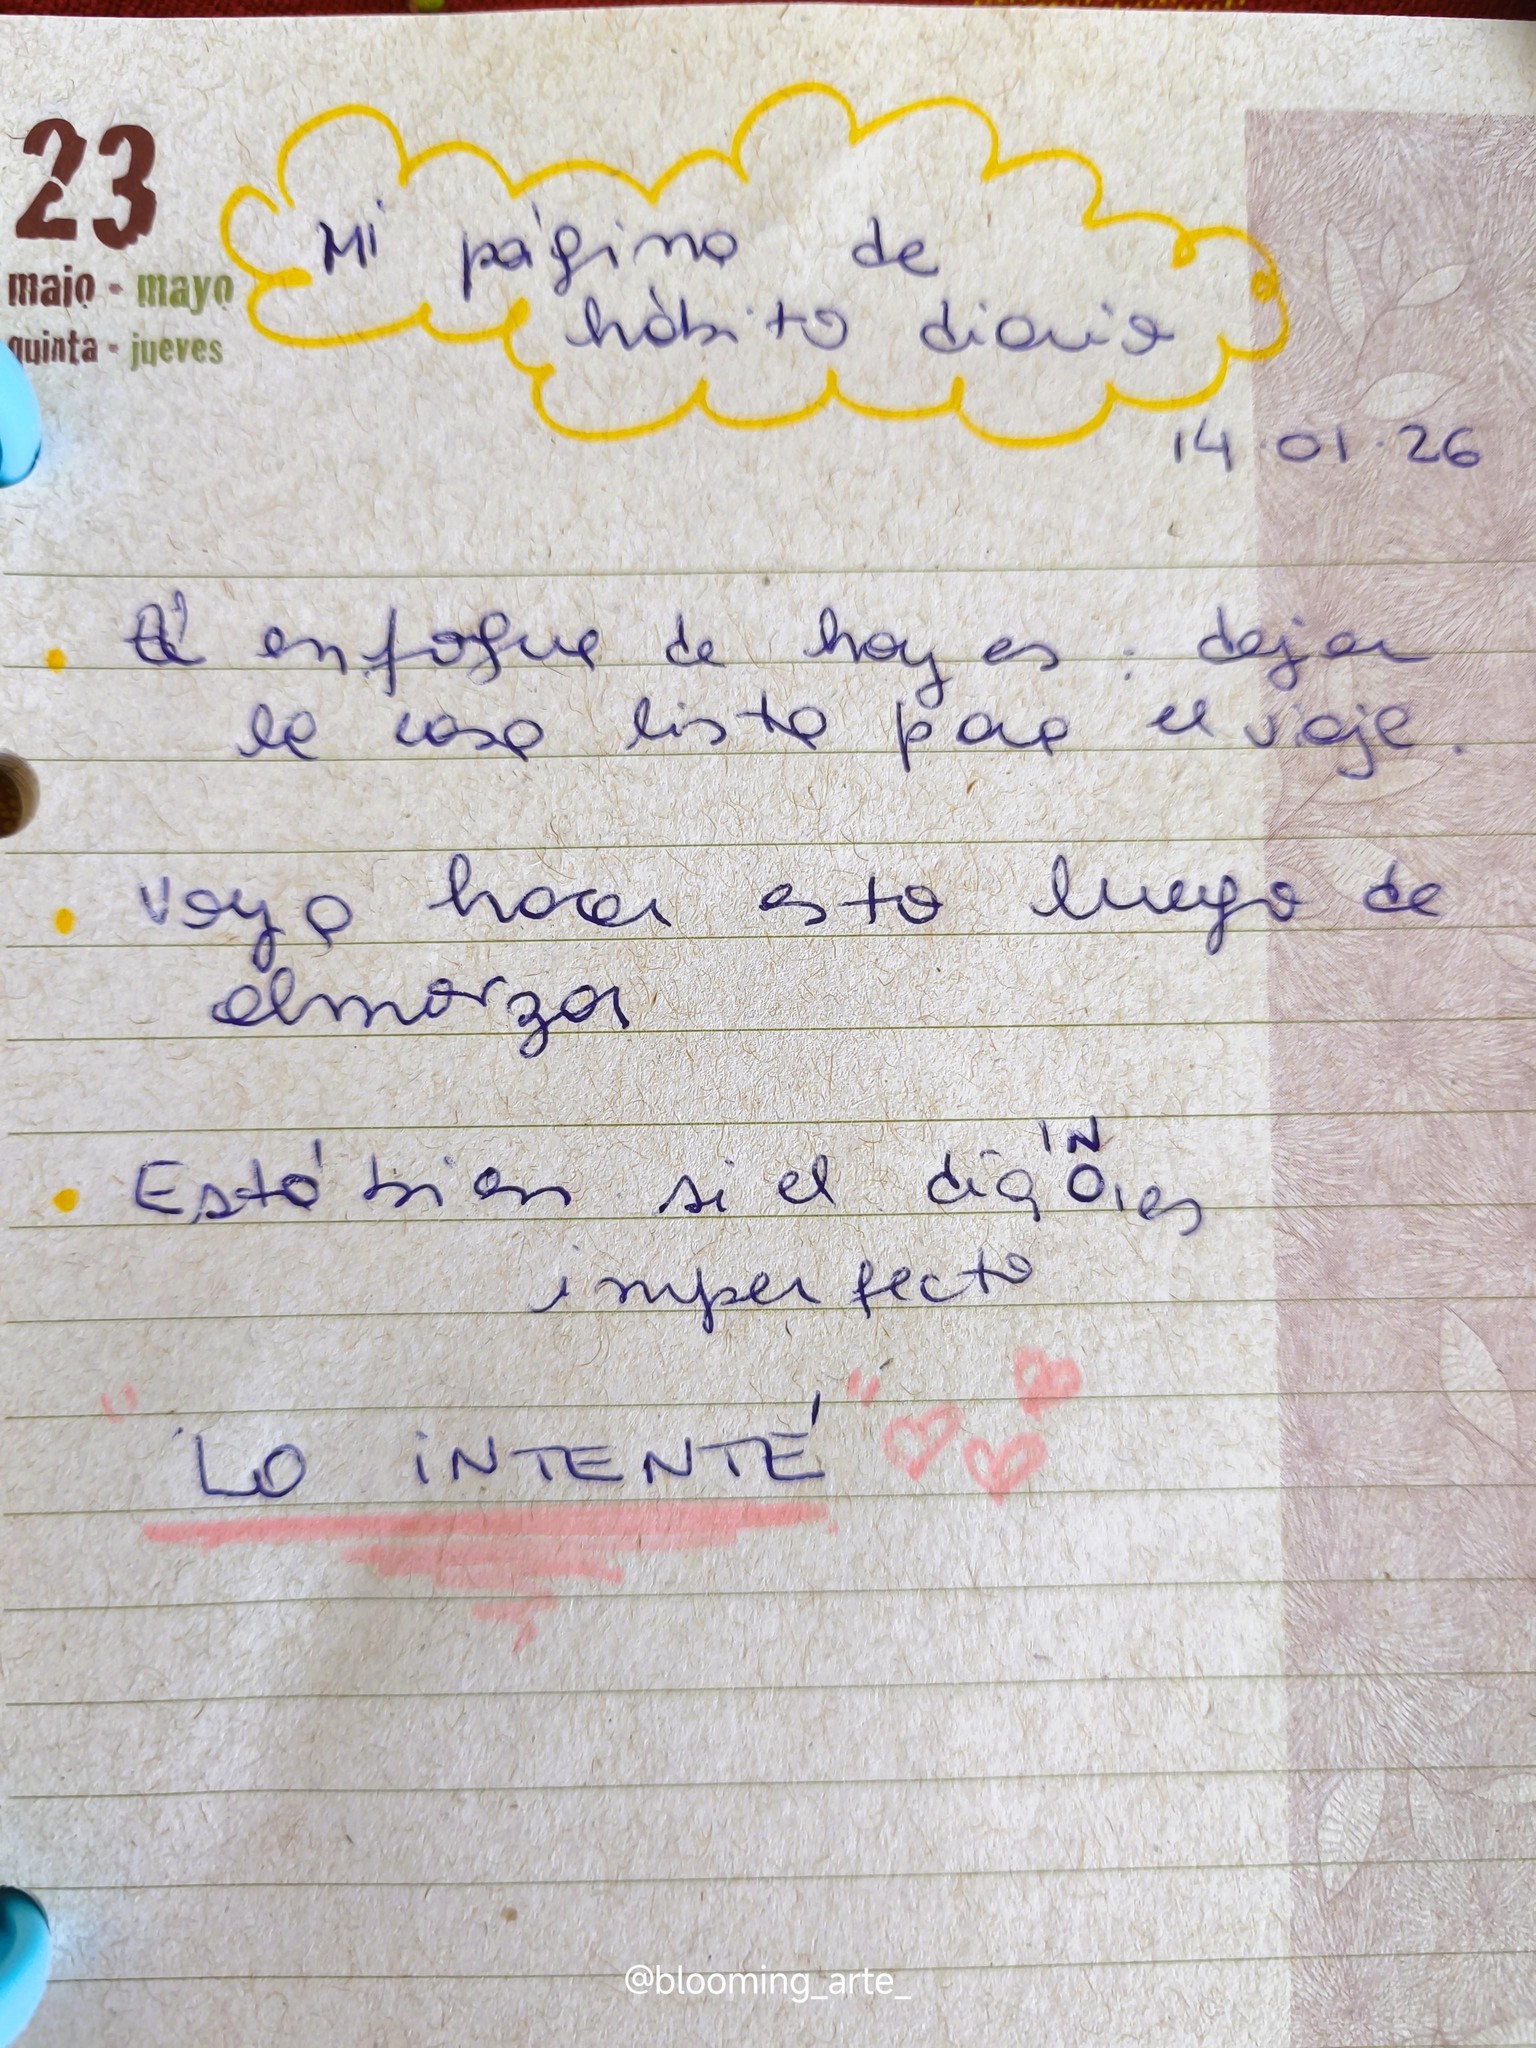 23
maio - mayo
quinta - jueves
Mi página de
hábito diario
14.01.26
• El enfoque de hoy es: dejar
la casa lista para el viaje.
• Voy a hacer esto luego de
almorzar
• Está bien si el día es
imperfecto
"LO INTENTÉ"
@blooming_arte_